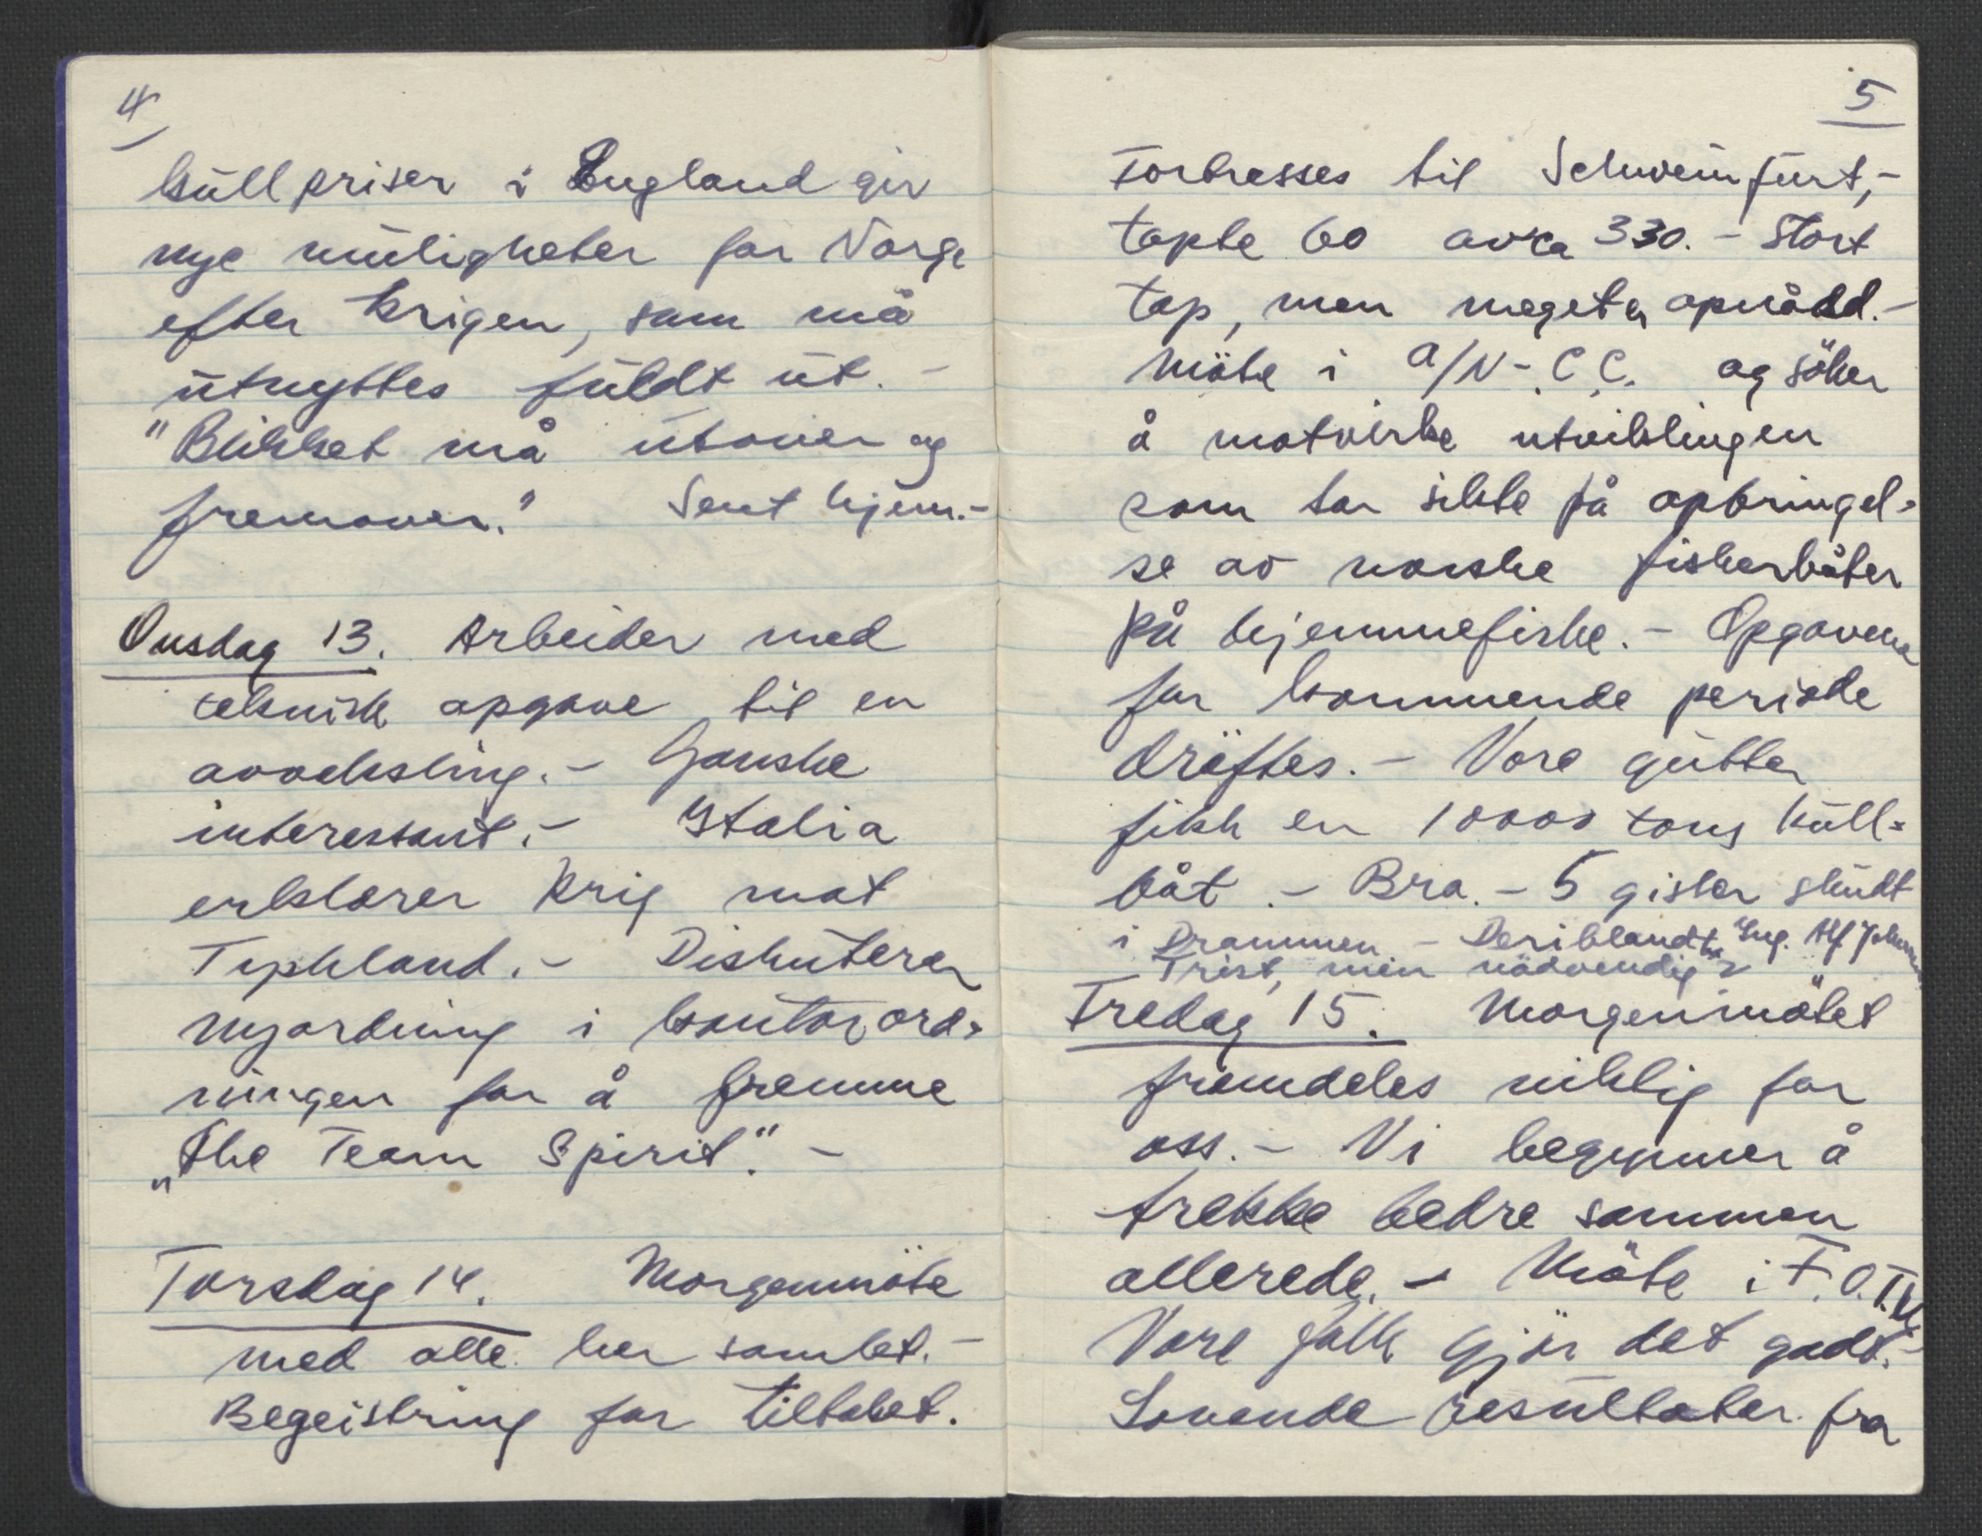 4
kullpriser i England gir
nye muligheter for Norge
efter krigen, som må
utnyttes fuldt ut. -
"Blikket må utover og
fremover." Sent hjem. -
Onsdag 13. Arbeider med
teknisk opgave til en
avveksling. - Ganske
interessant. - Italia
erklærer krig mot
Tyskland. - Diskuterer
nyordning i kontorord-
ningen for å fremme
"the Team Spirit". -
Torsdag 14. Morgenmöte
med alle her samlet. -
Begeistring for tiltaket.
5
Fortresses til Schweinfurt, -
tapte 60 av ca 330. - Stort
tap, men meget er opnådd. -
Möte i A/N - C.C. og söker
å motvirke utviklingen
som tar sikte på opbringel-
se av norske fiskerbåter
på hjemmefiske. - Opgavene
for kommende periode
dröftes. - Vore gutter
fikk en 10000 tons kull-
båt. - Bra. - 5 gisler skudt
i Drammen - Deriblandt Ing. Alf
Trist, men nödvendig?
Fredag 15. Morgenmötet
fremdeles viktig for
oss. - Vi begynner å
trekke bedre sammen
allerede. - Möte i F.O.T.U.
Vore folk gjör det godt. -
Lovende resultater fra